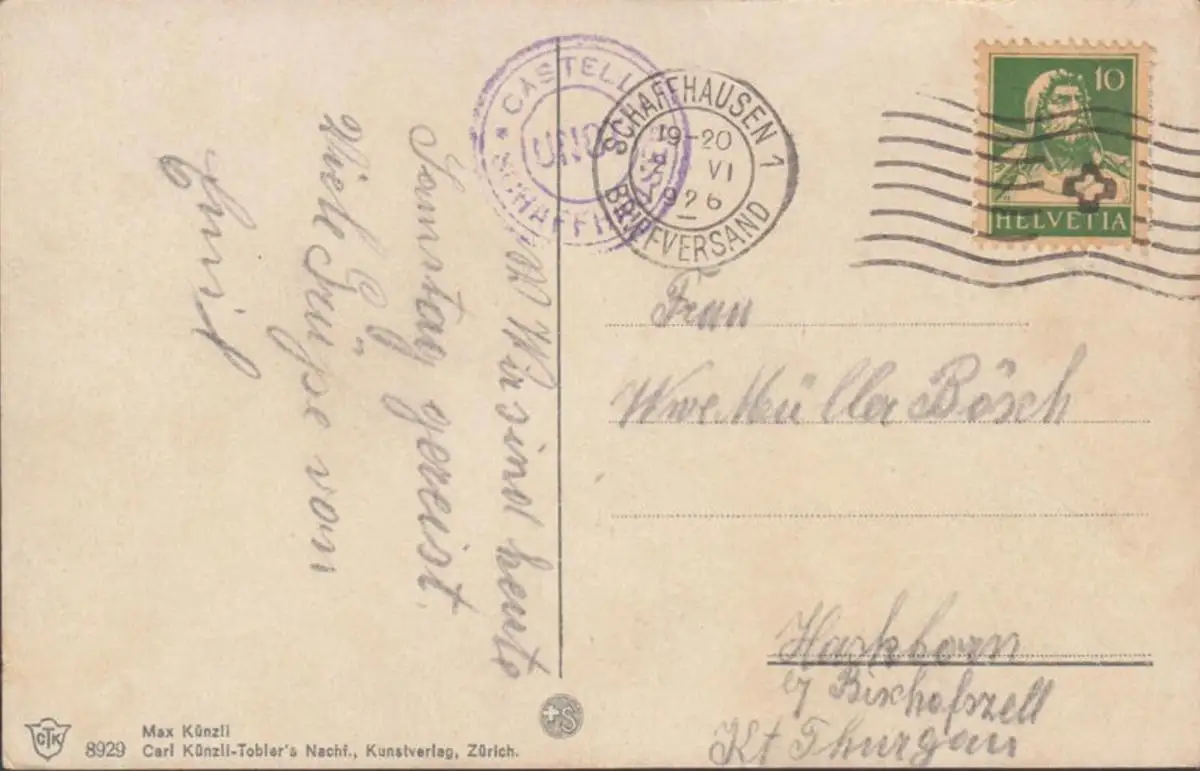 * CASTELL
UNO
SCHAFFH
SCHAFFHAUSEN 1
19-20
VI
1926
BRIEFVERSAND
10
HELVETIA
Wir sind heute
Samstag gereist.
Viele Grüße von
Emil
Frau
Wwe Müller Bösch
Haskhorn
b/ Bischofszell
Kt Thurgau
CTK
8929
Max Künzli
Carl Künzli-Tobler's Nachf., Kunstverlag, Zürich.
S